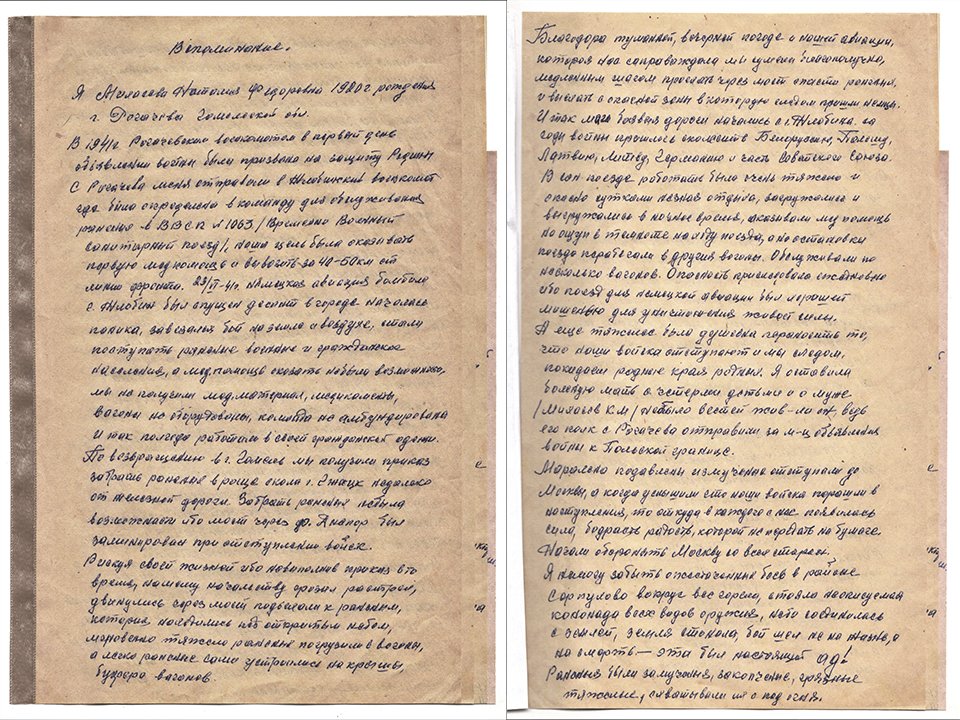 Вспоминание.
Я Михасева Наталия Федоровна 1920г рождения
г. Рогачева Гомельской обл.
В 1941г Рогачевским военкоматом в первый день
объявления войны была призвана на защиту Родины
С Рогачева меня отправили в Жлобинский военкомат
где была определена в команду для обслуживания
раненых в ВВСП № 1063 /Временно Военный
санитарный поезд/, наша цель была оказывать
первую медпомощь и вывозить за 40-50км от
линии фронта. 23/VI-41г. немецкая авиация бомбила
г. Жлобин был спущен десант в городе началась
паника, завязался бой на земле и воздухе, стали
поступать раненые военные и гражданское
население, а медпомощь оказать не было возможно,
мы не получили медматериал, медикаменты,
вагоны не оборудованы, команда не амбундирована
И так полгода работали в своей гражданской одежи.
По возвращению в г. Гомель мы получили приказ
забрать раненых в роще около г. недалеко
от железной дороги. Забрать раненых не было
возможности ибо мост через р. Днепор был
заминирован при отступлении войск.
Рискуя своей жизнью ибо невыполнив приказ в то
время, нашему начальству грозил расстрел,
двинулись через мост подъехали к раненым,
которые находились под открытым небом,
мгновенно тяжело раненые погрузили в вагоны,
а легко раненые сами устроились на крышы,
буфера вагонов.
Благодоря туманной, вечерней погоде и нашей авиации,
которая нас сопровождала мы сумели благополучно,
медленным шагом проехать через мост спасти раненых,
и выехать с опасной зоны в которую следом прошли немцы.
И так моя боевая дорога началась с г. Жлобина. за
годы войны пришлось околесить Белоруссию, Польшу,
Латвию, Литву, Германию и часть Советского Союза.
В сан поезде работать было очень тяжело и
сколько сутками незная отдыха, загружались и
выгружались в ночное время, оказывали медпомощь
на ощуп в темноте на ходу поезда, а на остановки
поезда перебегали в другия вагоны. Обслуживали по
несколько вагонов. Опасность приследовала ежедневно
ибо поезд для немецкой авиации был хорошей
мошенью для уничтожения живой силы.
А еще тяжелее было душевно переносить то,
что наши войска отступают и мы следом,
покидаем родные края родных. Я оставила
больную мать с четерми детьми и о муже
/Михасев К.М/ небыло вестей жив-ли он, ведь
его полк с Рогачева отправили за м-ц объявления
войны к Польской границе.
Марально подавлены измученые отступали до
Москвы, а когда услышили что наши войска перешли в
наступления, то откуда в каждого с нас появилась
сила, бодрасть радость, которой не передать на бумаге.
Начали оборонять Москву со всех старон.
Я немогу забыть ожесточенные бои в районе
вокруг все горело, стояла неописуемая
кононада всех видов оружия, небо соединилось
с землей, земля стонала, бой шел не на жизнь, а
на смерть — эта был настоящий ад!
Раненыя были замученыя, закопченые, грязные
тяжелые, схватывали их с под огня.